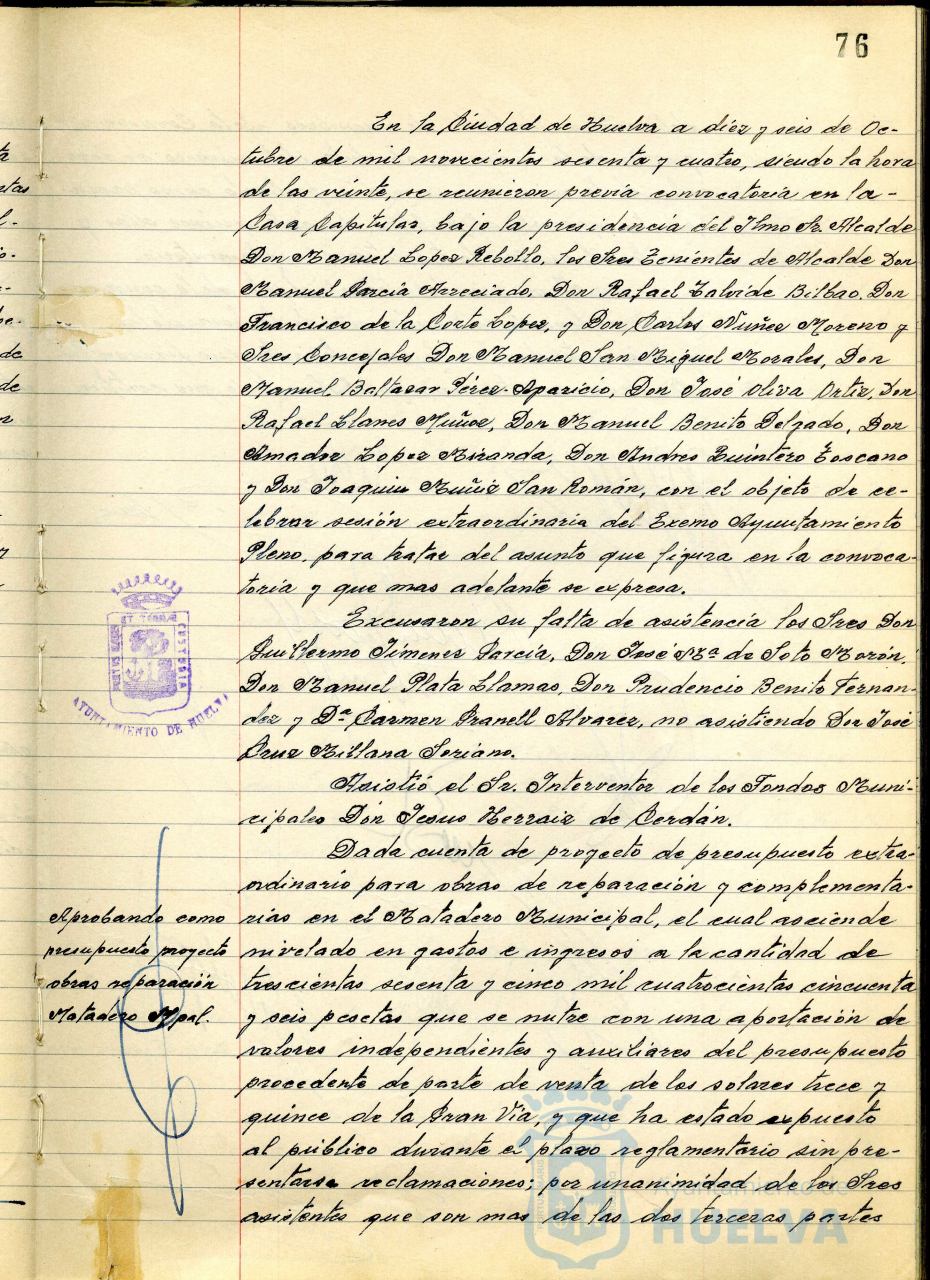 76
En la Ciudad de Huelva a diez y seis de Oc-
tubre de mil novecientos sesenta y cuatro, siendo la hora
de las veinte, se reunieron previa convocatoria en la-
Casa Capitular, bajo la presidencia del Ilmo Sr. Alcalde
Don Manuel Lopez Rebollo, los Sres Tenientes de Alcalde Don
Manuel Garcia Arreciado, Don Rafael Talvide Bilbao, Don
Francisco de la Corte Lopez, y Don Carlos Nuñez Moreno y
Sres Concejales Don Manuel San Miguel Morales, Don
Manuel Baltasar Pérez-Aparicio, Don José Oliva Ortiz, Don
Rafael Llanes Muñoz, Don Manuel Benito Delgado, Don
Amador Lopez Miranda, Don Andres Quintero Toscano
y Don Joaquin Muñiz San Román, con el objeto de ce-
lebrar sesión extraordinaria del Excmo Ayuntamiento
Pleno, para tratar del asunto que figura en la convoca-
toria y que mas adelante se expresa.
Excusaron su falta de asistencia los Sres Don
Guillermo Jimenez Garcia, Don José Mª de Soto Morón,
Don Manuel Plata Llamas, Don Prudencio Benito Fernan-
dez y Dª Carmen Granell Alvarez, no asistiendo Don José
Cruz Millana Soriano.
Asistió el Sr. Interventor de los Fondos Muni-
cipales Dón Jesus Herraiz de Cerdán.
Dada cuenta de proyecto de presupuesto extra-
ordinario para obras de reparación y complementa-
rias en el Matadero Municipal, el cual asciende
nivelado en gastos e ingresos a la cantidad de
trescientas sesenta y cinco mil cuatrocientas cincuenta
y seis pesetas que se nutre con una aportación de
valores independientes y auxiliares del presupuesto
procedente de parte de venta de los solares trece y
quince de la Gran Via, y que ha estado expuesto
al público durante el plazo reglamentario sin pre-
sentarse reclamaciones; por unanimidad de los Sres
asistentes que son mas de las dos terceras partes
Aprobando como
presupuesto proyecto
obras reparación
Matadero Mpal.
PORTUS MARIS
ET TERRAE
CUSTODIA
AYUNTAMIENTO DE HUELVA
Ayuntamiento de
HUELVA